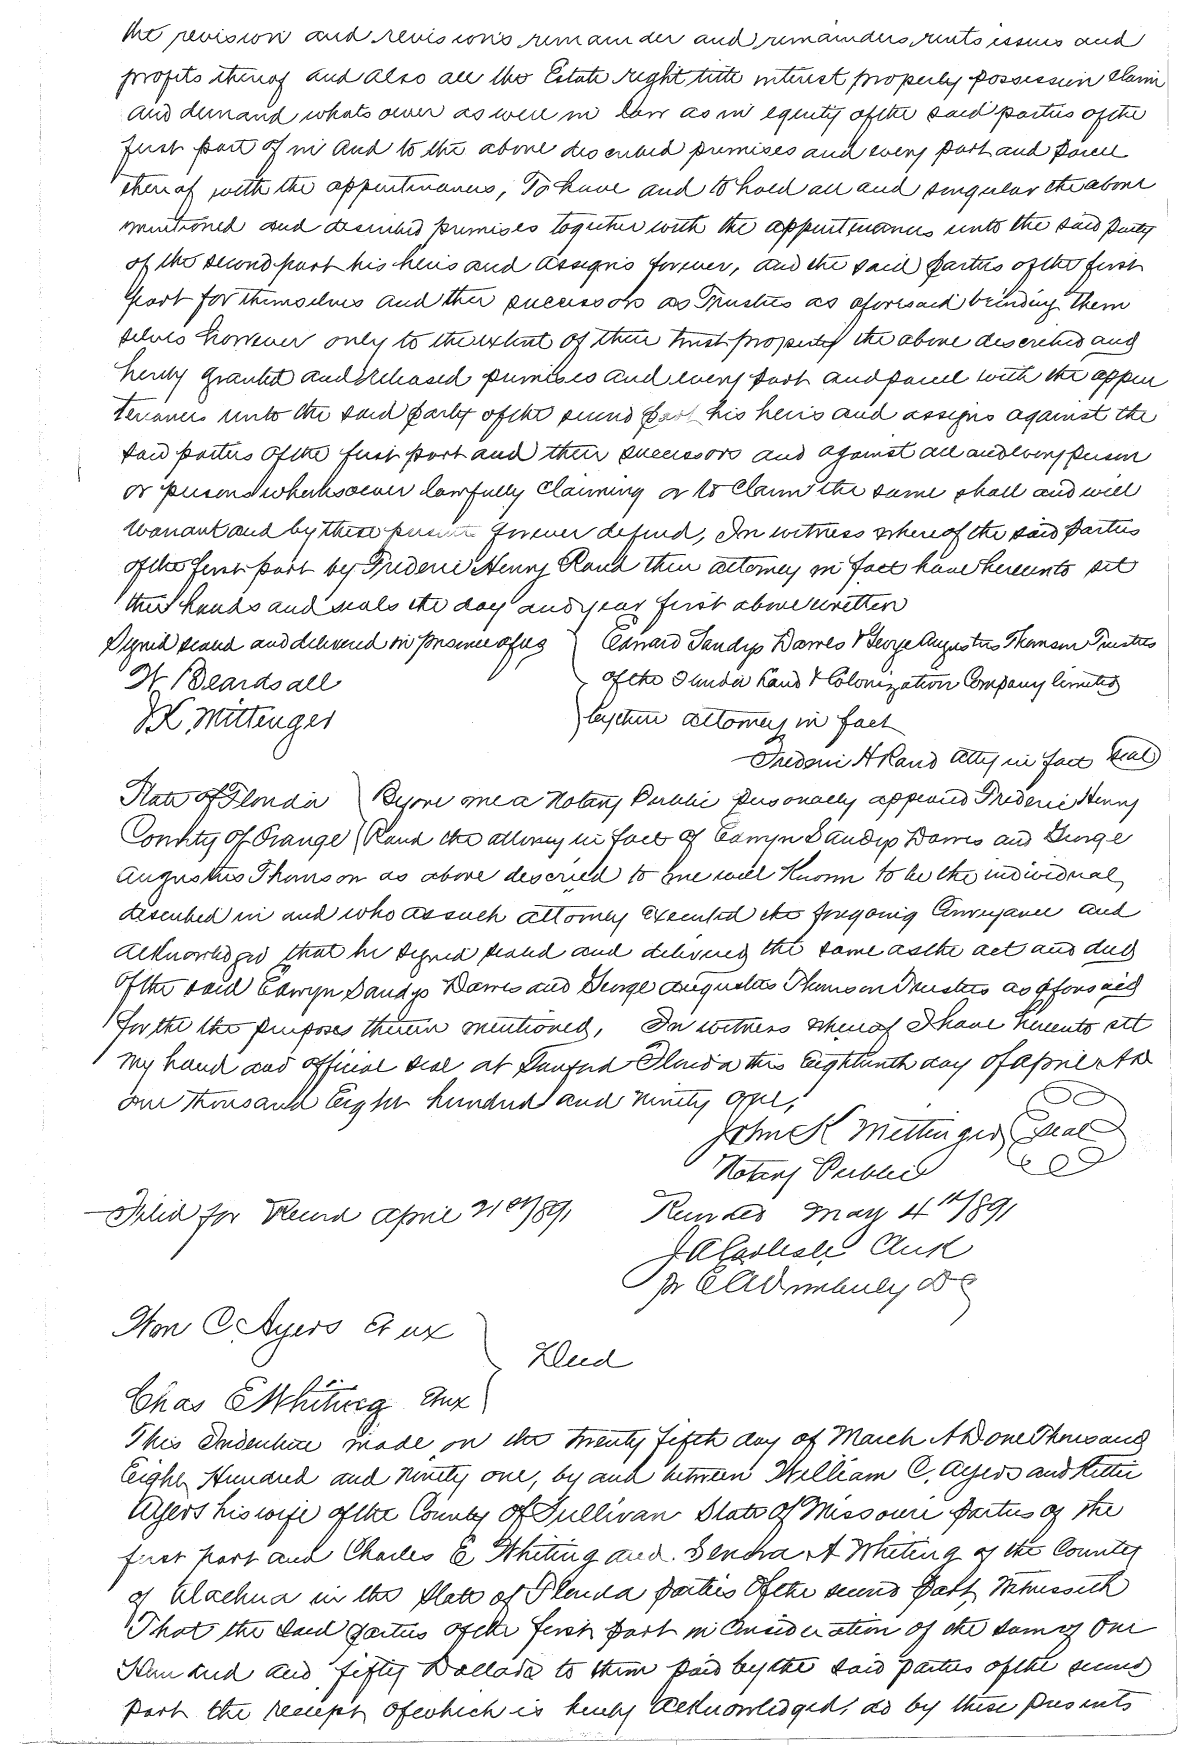 the revision and revisions remainder and remainders rents issues and
profits thereof and also all the Estate right title interest property possession claim
and demand whatsoever as well in law as in equity of the said parties of the
first part of in and to the above described premises and every part and parcel
thereof with the appurtenances, To have and to hold all and singular the above
mentioned and described premises together with the appurtenances unto the said party
of the second part his heirs and assigns forever, and the said parties of the first
part for themselves and their successors as Trustees as aforesaid binding them
selves however only to the extent of their trust property the above described and
hereby granted and released premises and every part and parcel with the appur
tenances unto the said party of the second part his heirs and assigns against the
said parties of the first part and their successors and against all and every person
or persons whomsoever lawfully claiming or to claim the same shall and will
warrant and by these presents forever defend, In witness whereof the said parties
of the first part by Frederic Henry Rand their attorney in fact have hereunto set
their hands and seals the day and year first above written
Signed sealed and delivered in presence of us
W Beardsall
J K, Mittenger
Edward Sandys Dawes & George Augustus Thomson Trustees
of the Florida Land & Colonization Company limited
by their attorney in fact
Frederic H Rand atty in fact seal
State of Florida Before me a Notary Public personally appeared Frederic Henry
County of Orange Rand the attorney in fact of Edwyn Sandys Dawes and George
Augustus Thomson as above described to me well known to be the individual
described in and who as such attorney executed the foregoing Conveyance and
acknowledged that he signed sealed and delivered the same as the act and deed
of the said Edwyn Sandys Dawes and George Augustus Thomson Trustees as aforesaid
for the the purposes therein mentioned, In witness whereof I have hereunto set
my hand and official seal at Sanford Florida this Eighteenth day of April AD
one thousand Eight hundred and ninety one,
John K Mettinger seal
Notary Public
Filed for Record April 21st/891
Recorded May 4th/891
J A Carlisle Clerk
pr E A Wimberly DC
Wm C. Ayers Et ux
Deed
Chas E Whiting Et ux
This Indenture made on the twenty fifth day of March AD one Thousand
Eight Hundred and ninety one, by and between William C. Ayers and Kittie
Ayers his wife of the County of Sullivan State of Missouri parties of the
first part and Charles E Whiting and Senora A Whiting of the County
of Alachua in the State of Florida parties of the second part, Witnesseth
That the said parties of the first part in consideration of the sum of One
Hundred and fifty Dollars to them paid by the said parties of the second
part the receipt of which is hereby acknowledged, do by these presents